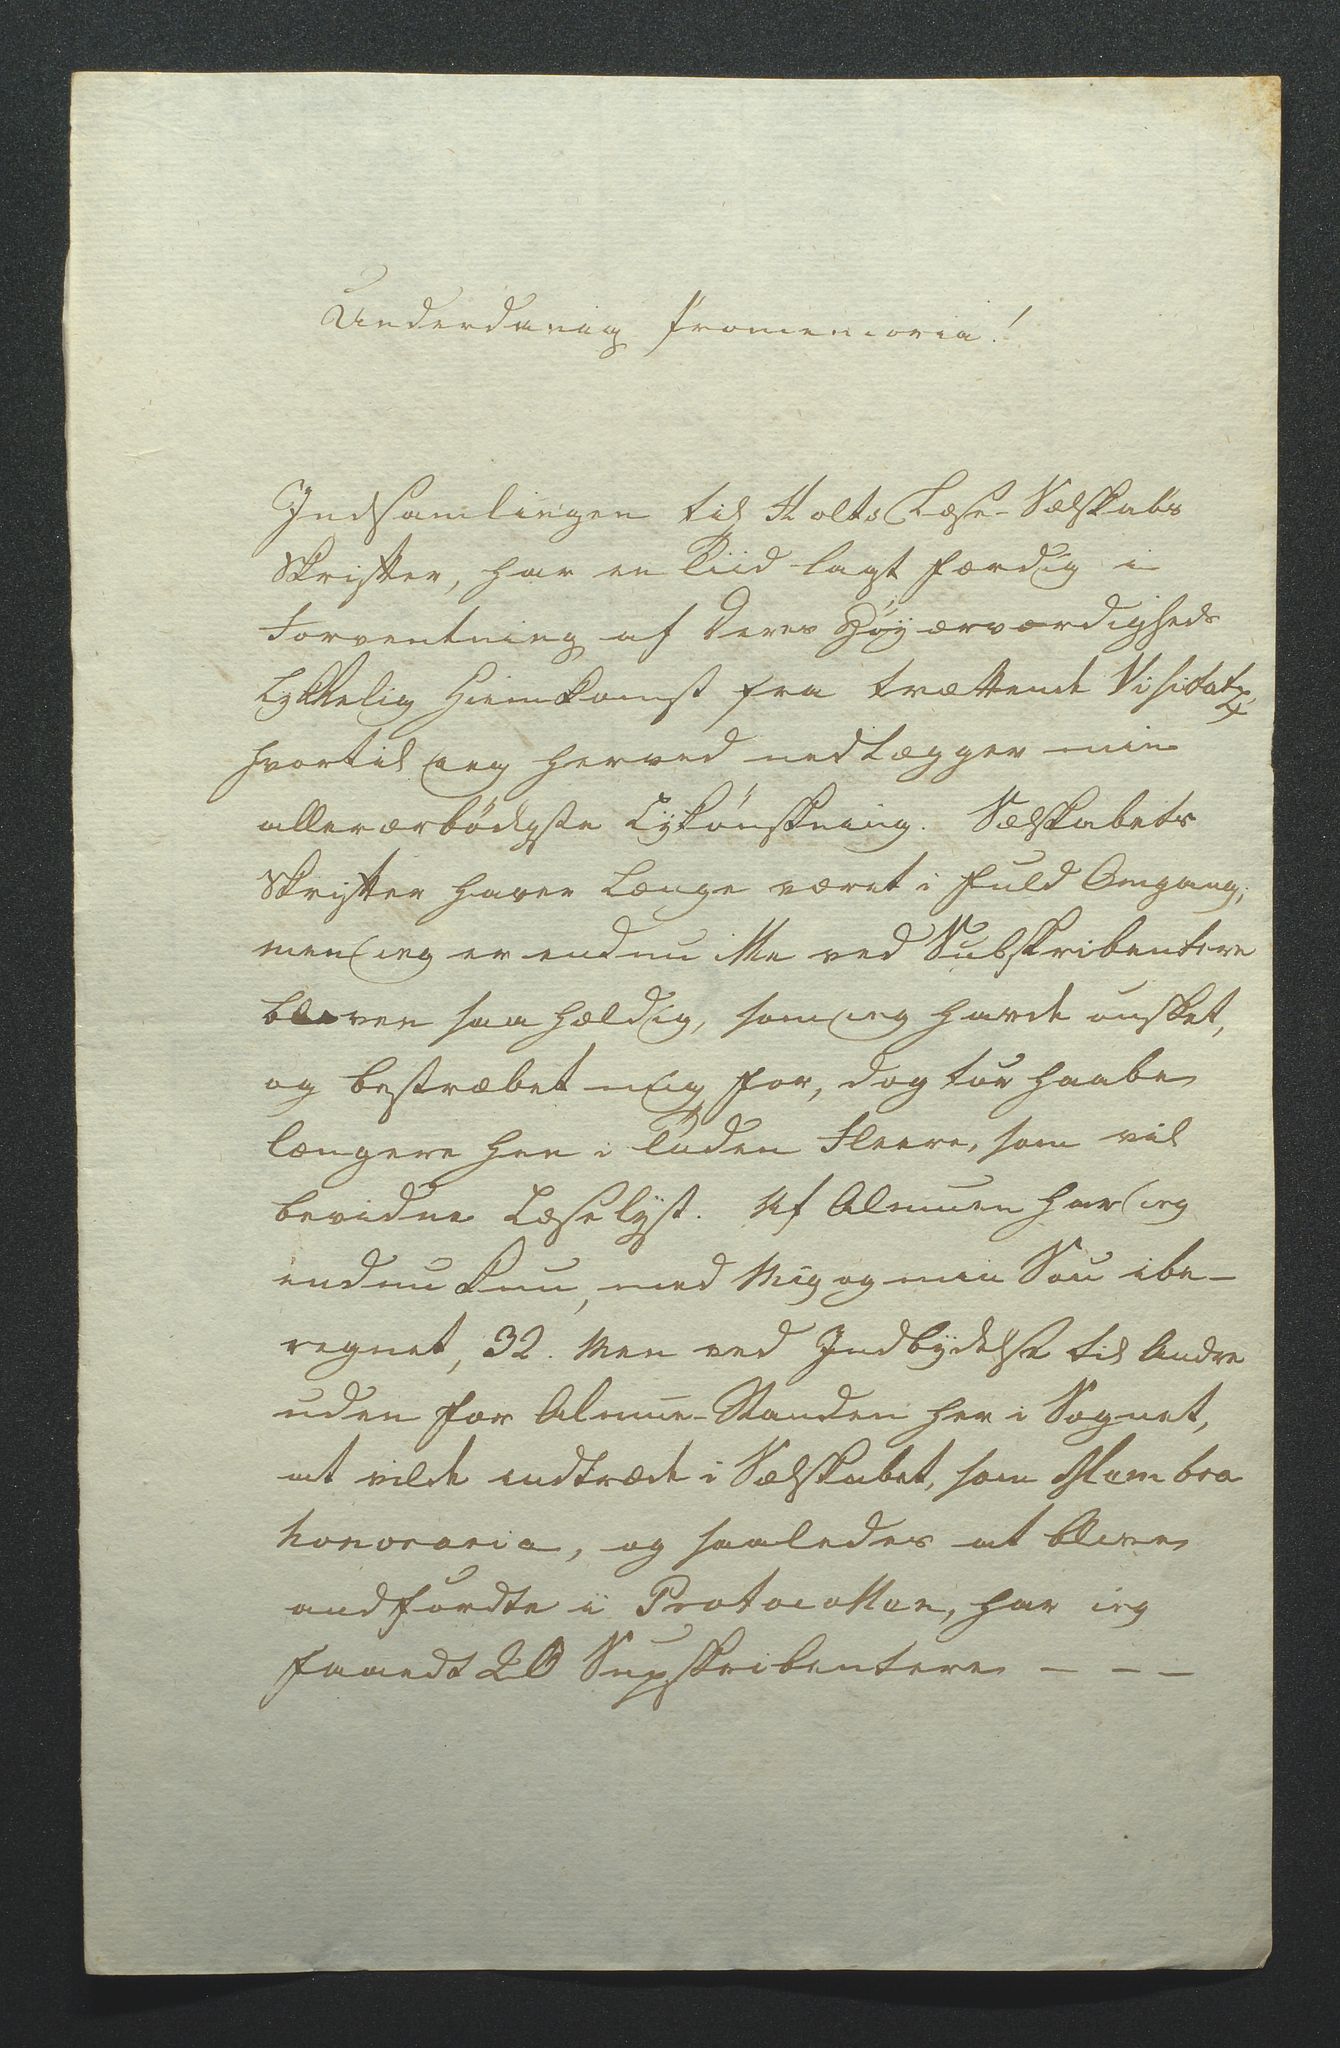 Underdanig Promemoria!
Indsamlingen til Holts Læse-Selskabs
Skrifter, har en Tiid lagt færdig i
Forventning af Deres Høyærværdigheds
Lykkelig Hiemkomst fra trættende Visitatz,
hvortil ieg herved nedlægger min
allerærbødigste Lykønskning. Selskabets
Skrifter haver længe været i fuld Omgang,
men ieg er endnu ikke ved Subskribentere
bleven saa heldig, som ieg havde ønsket,
og bestræbet mig for, dog tør haabe
længere hen i Tiiden Fleere, som vil
bevidne Læselyst. Af Almuen har ieg
endnu kun, med Mig og min Søn ibe-
regnet, 32. Men ved Indbydelse til Andre
uden for Almue-Standen her i Sognet,
at vilde indtræde i Selskabet, som Membra
honoraria, og saaledes at blive
andførdte i Protocollen, har ieg
faaedt 20 Supskribentere - - -